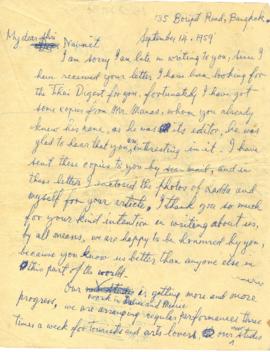 135 Boript Road, Bangkok
September 14, 1959
My dear Navneet
I am sorry I am late in writing to you, since I
have received your letter I have been looking for
the Thai Digest for you, fortunately I have got
some copies from Mr. Manas, whom you already
knew his name, as he was its editor, he was
glad to hear that you are interesting in it. I have
sent these copies to you by sea mail, and in
these letter I enclosed the photos of Ladda and
myself for your articles. I thank you so much
for your kind intention in writing about us,
by all means, we are happy to be honoured by you,
because you know us better than anyone else in
this part of the world.
Our work in Dance and Music is getting more and more
progress, we are arranging regular performances three
times a week for tourists and arts lovers, our studio